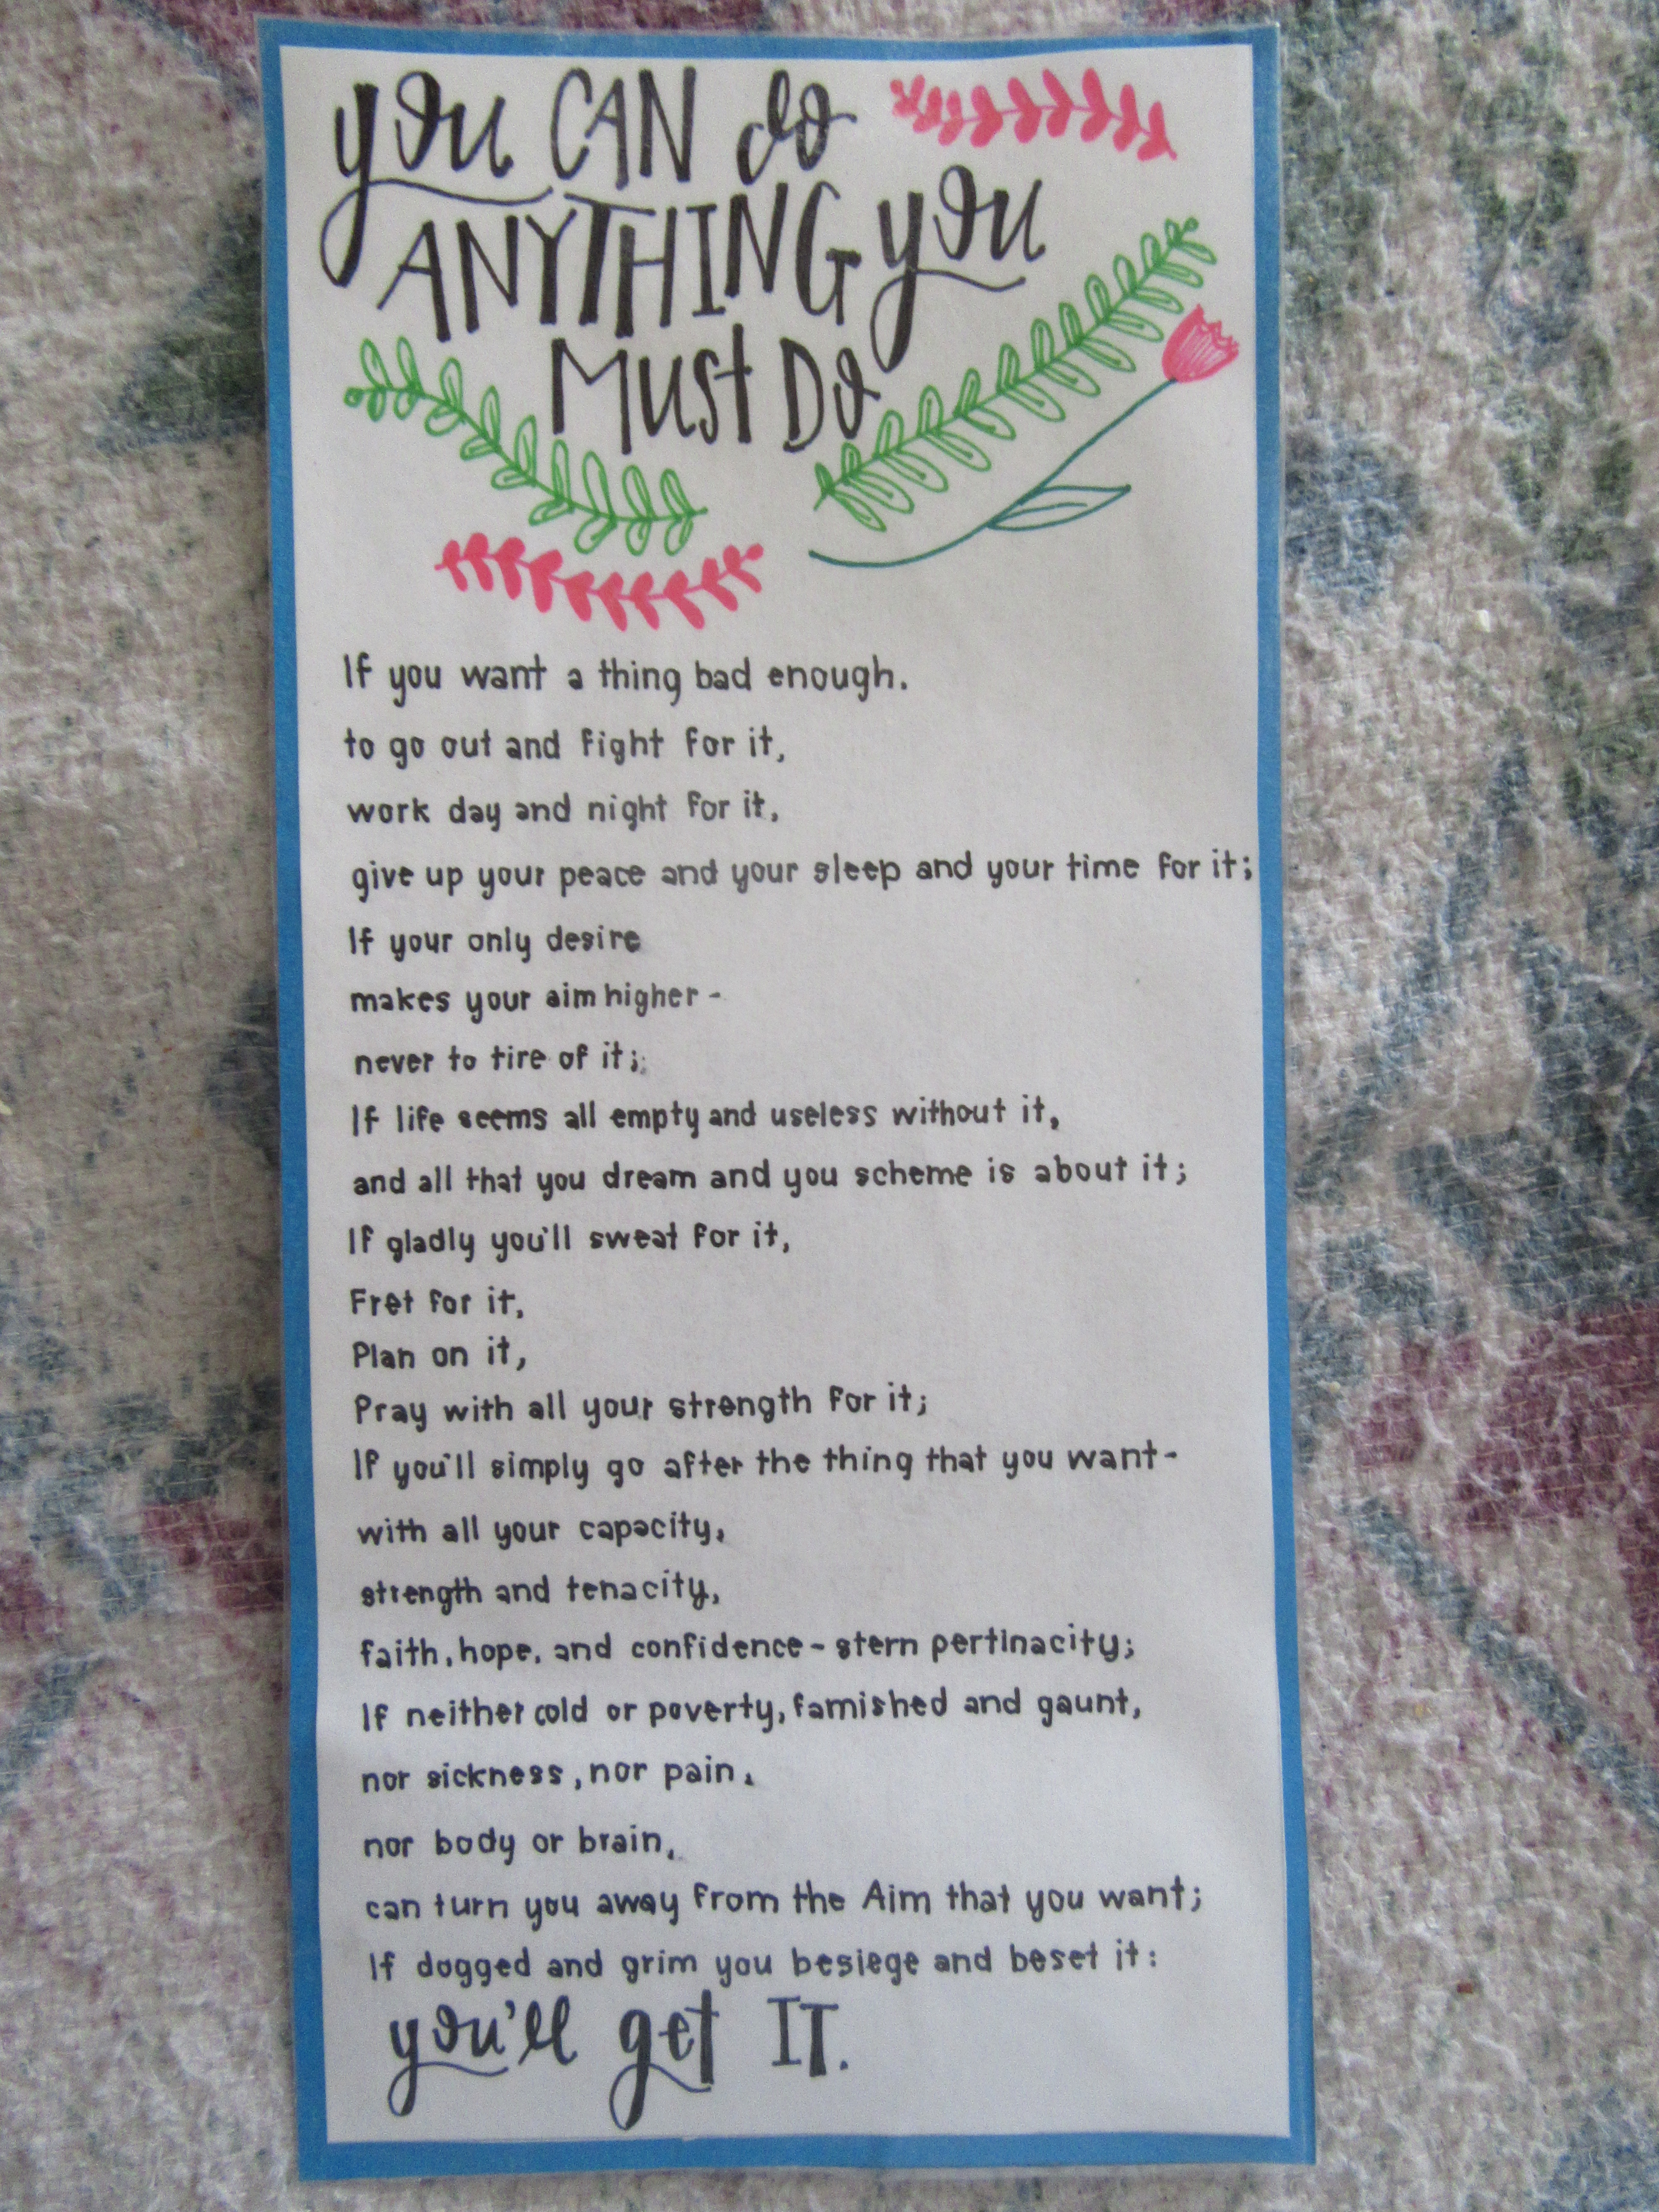 you CAN do
ANYTHING you
Must Do
If you want a thing bad enough.
to go out and fight for it,
work day and night for it,
give up your peace and your sleep and your time for it;
If your only desire
makes your aim higher -
never to tire of it;
If life seems all empty and useless without it,
and all that you dream and you scheme is about it;
If gladly you'll sweat for it,
Fret for it,
Plan on it,
Pray with all your strength for it;
If you'll simply go after the thing that you want-
with all your capacity,
strength and tenacity,
faith, hope, and confidence - stern pertinacity;
If neither cold or poverty, famished and gaunt,
nor sickness, nor pain,
nor body or brain,
can turn you away from the Aim that you want;
If dogged and grim you besiege and beset it:
you'll get IT.